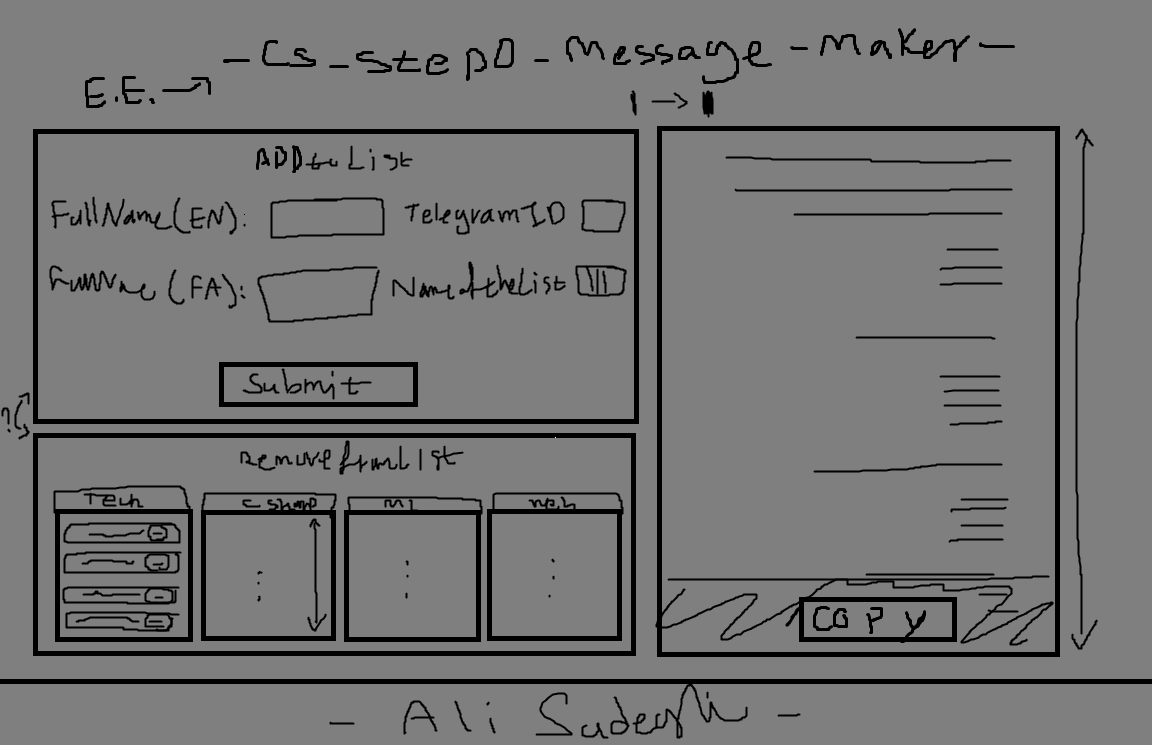 - Cs - Step0 - Message - Maker -
E.E.
ADD to List
FullName(EN):
TelegramID
(FA):
NameoftheList
Submit
?
Remove from List
Tech
C sharp
COPY
- Ali Sadeghi -